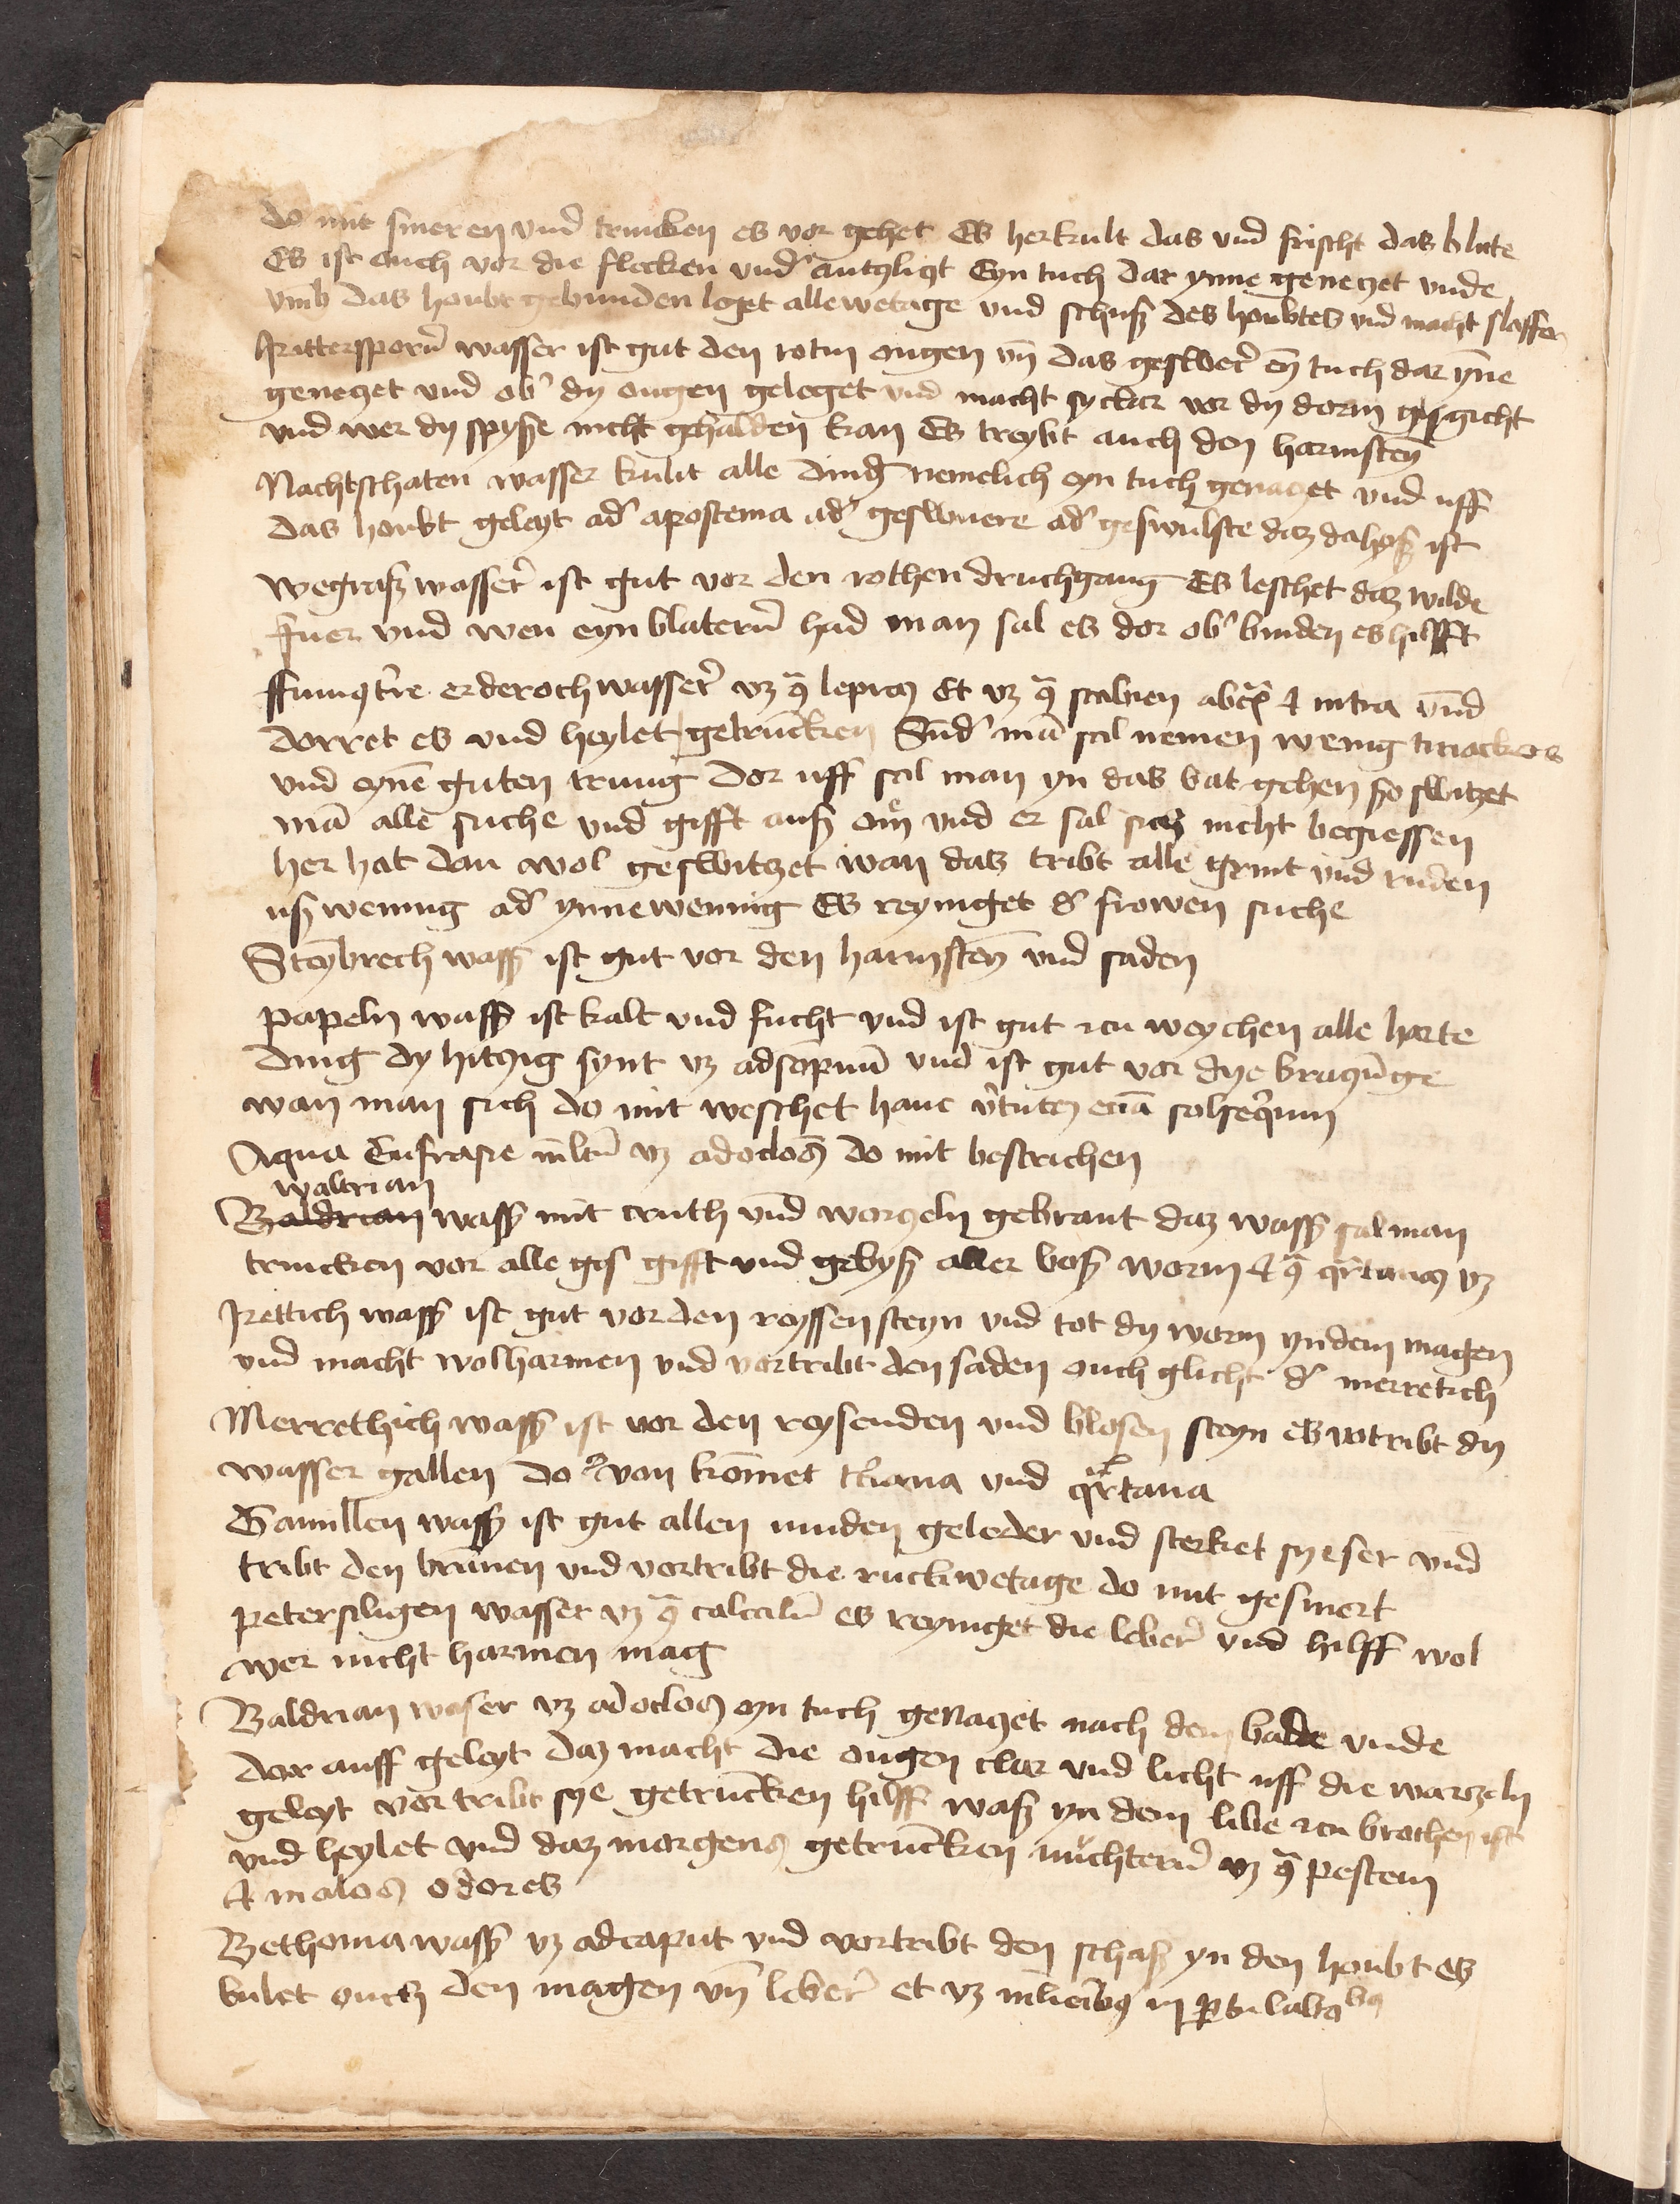 do mit smeren vnd trincken es vor gehet Es herkult das vnd frischt das blute
Es ist ouch vor die flecken vnd antzlitzt Eyn tuch dar ynne genetzet vnde
vmb das houbt gebunden leget alle wetage vnd schusz des houbtes vnd macht slaffen
Rittersporn̄ wasser ist gut den rotin ougen vn̄ das geswer̄ eȳ tuch dar yn̄e
genetzet vnd ob' dy ougen geleget vnd macht sy clar vor dy dorm gesgicht
vnd wer dy spysze nicht gehalden kan Es treybt auch den harmsteȳ
Nachtschaten wasser kulit alle ding nemelich eyn tuch genaczet vnd uff
das houbt geleyt ad' apostema ad' geswuere ad' geswulste daz da heysz ist
wegrasz wasser̄ ist gut vor den rothen druchgang Es leschet daz wilde
fuer vnd wen eyn blatern̄ had man sal es dor ob' binden es hilfft
ffumqt're erderoch wasser̄ vz 9ᵃ lepram Et vz 9ᵃ scabien et intra vnd
dorret es vnd heylet getruncken Sund' mā sal nemen wenig tiriackers
vnd eynē guten trung dor uff sal man yn das bat gehen so switzet
mā alle suche vnd gifft ausz om vnd er sal sich nicht begiessen
her hat dan wol geswitzet wan das tribt alle grint vnd ruden
usz wennig ad' ynnewennig Es reyniget d' frowen suche
Steȳbrech wassz ist gut vor den harmsteȳ vnd saden
papeln wassz ist kalt vnd fucht vnd ist gut zcu weychen alle harte
ding dy hitzig synt vz ad sopnū vnd ist gut vor dye
wan man sich do mit weschet hanc v'tutez etiā solseqium
Aqua Eufrasie mltū vz ad oclos do mit bestrichen
waltrian
Baldrian wassz mit cruth vnd worczeln gebrant daz wassz sal man
trincken vor alle ges gifft vnd gebysz aller bosz worm et 9ᵃ qrtanas vz
Rettich wassz ist gut vor den reyssen steyn vnd tot dy worm yn dem magen
vnd macht wol harmen vnd vortribt den saden ouch glicht d' merretich
Merrethich wassz ist vor den reysenden vnd blosen steyn es votribt dy
wasser gallen do von kōmet t'ciana vnd qrtana
Gamillen wassz ist gut allen muden geleder vnd sterket sy eser vnd
tribt den brunen vnd vortribt die ruckwetage do mit gesmert
petersiligen wasser vz 9ᵃ calculū es reyniget die leber̄ vnd hilff wol
wer nicht harmen mag
Baldrian waser vz ad oclos eyn tuch genaczet nach dem bade vnde
dor auff geleyt daz macht die ougen clar vnd licht uff die warczeln
geleyt vor tribt sye getruncken hilff wasz yn dem libe zcu brochen ist
vnd heylet vnd daz morgens getruncken nuchtern̄ vz 9ᵃ pestem
et malos odores
Bethonia wassz vz ad caput vnd vortribt den yn den houbt es
kulet ouch den magen vn̄ leber̄ et vz mlierib9 in p̄tu